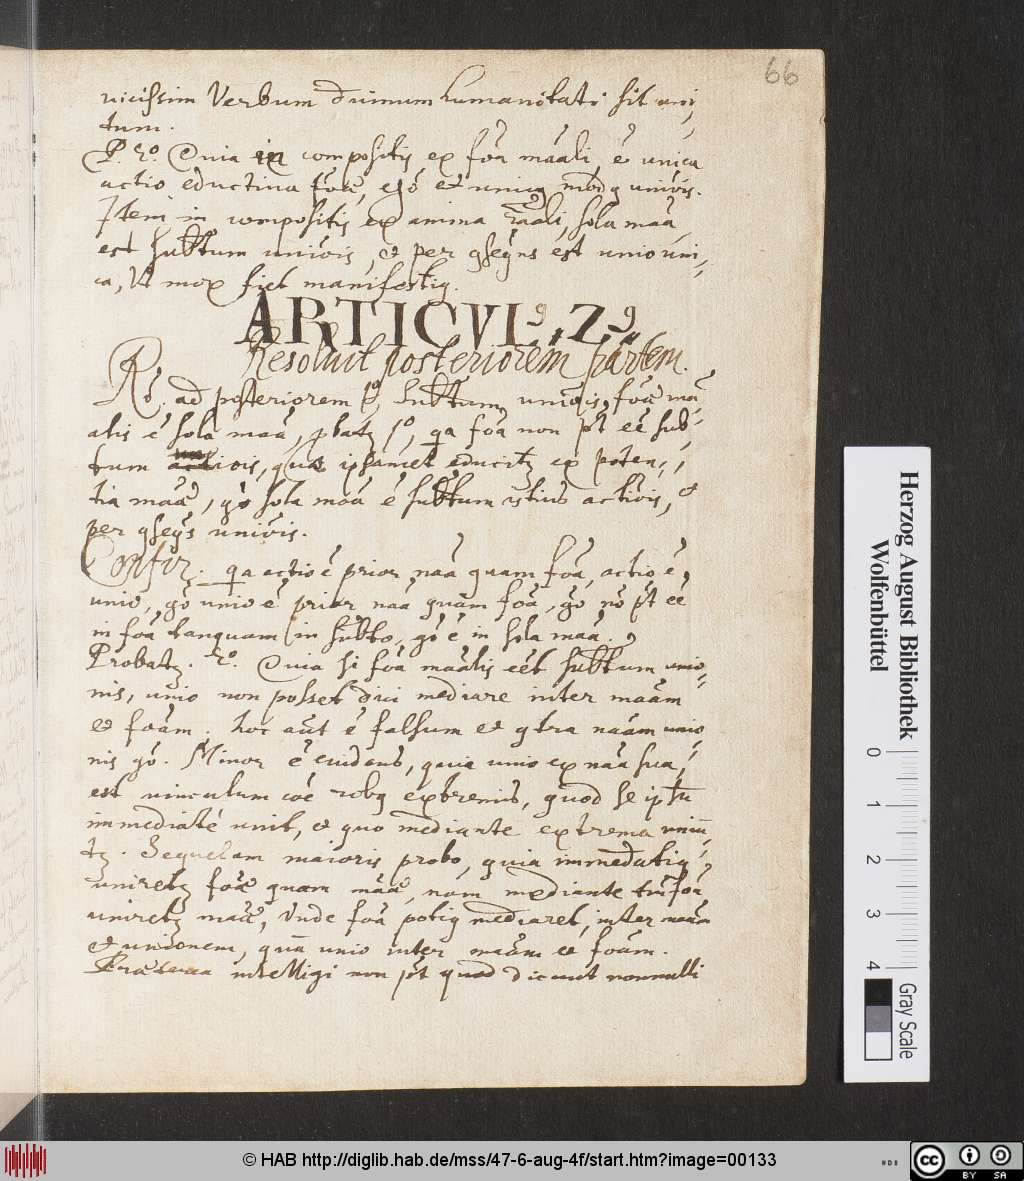 66
vicissim Verbum diuinum humanitati sit uni,,
tum.
P. 2º. Quia in compositis ex foá maáli, é unica
actio eductiua foáe, egó et unicq modq uniois.
Item in compositis ex anima raáli, sola maá
est subtum uniois, et per qseqns est unio uni,,
ca, Vt mox fiet manifestiq.
ARTICVLꝰ, 2ꝰ
Resoluit posteriorem partem.
Rº. ad posteriorem subtum uniois, foáe ma,,
alis é sola maá, pbatz 1º, qa foá non pt eé sub,,
tum uniois, quae ipsamet educitz ex poten,,
tia maáe, gó sola maá é subtum istius actiois, et
per qseqs uniois.
Confirz. qa actio é prior naá quam foá, actio é
unio, gó unio é prior naá quam foá, gó nó pt eé
in foá tanquam in subto, gó é in sola maá.
Probatz. 2º. Quia si foá maális eét subtum unio,,
nis, unio non posset dici mediare inter maám
et foám. hoc aút é falsum et qtra naám unio,,
nis gó. Minor é euidens, quia unio ex naá sua,
est vinculum coé robq extremis, quod se ipsu
immediaté unit, et quo mediante extrema uniu,,
tz. Sequelam maioris probo, quia immediatiq
uniretz foáe quam maáe, nam mediante tm foá
uniretz maáe, Vnde foá potiq mediaret, inter maám
et unionem, quá unio inter maám et foám.
intelligi non pt quod dicunt nonnulli
Herzog August Bibliothek
Wolfenbüttel
0 1 2 3 4
Gray Scale
© HAB http://diglib.hab.de/mss/47-6-aug-4f/start.htm?image=00133
cc BY SA